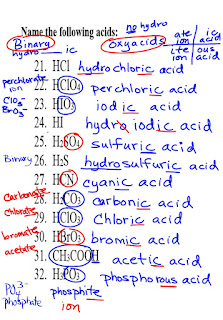 Name the following acids: no hydro
Binary oxyacids
hydro ic
ate ion ic acid
ite ion ous acid
21. HCl hydrochloric acid
perchlorate ion 22. HClO4 perchloric acid
ClO3 BrO3 23. HIO3 iodic acid
24. HI hydroiodic acid
25. H2SO4 sulfuric acid
Binary 26. H2S hydrosulfuric acid
27. HCN cyanic acid
Carbonate 28. H2CO3 carbonic acid
chlorate 29. HClO3 Chloric acid
bromate 30. HBrO3 bromic acid
acetate 31. CH3COOH acetic acid
PO4 3- phosphate 32. H3PO3 phosphorous acid
phosphite ion